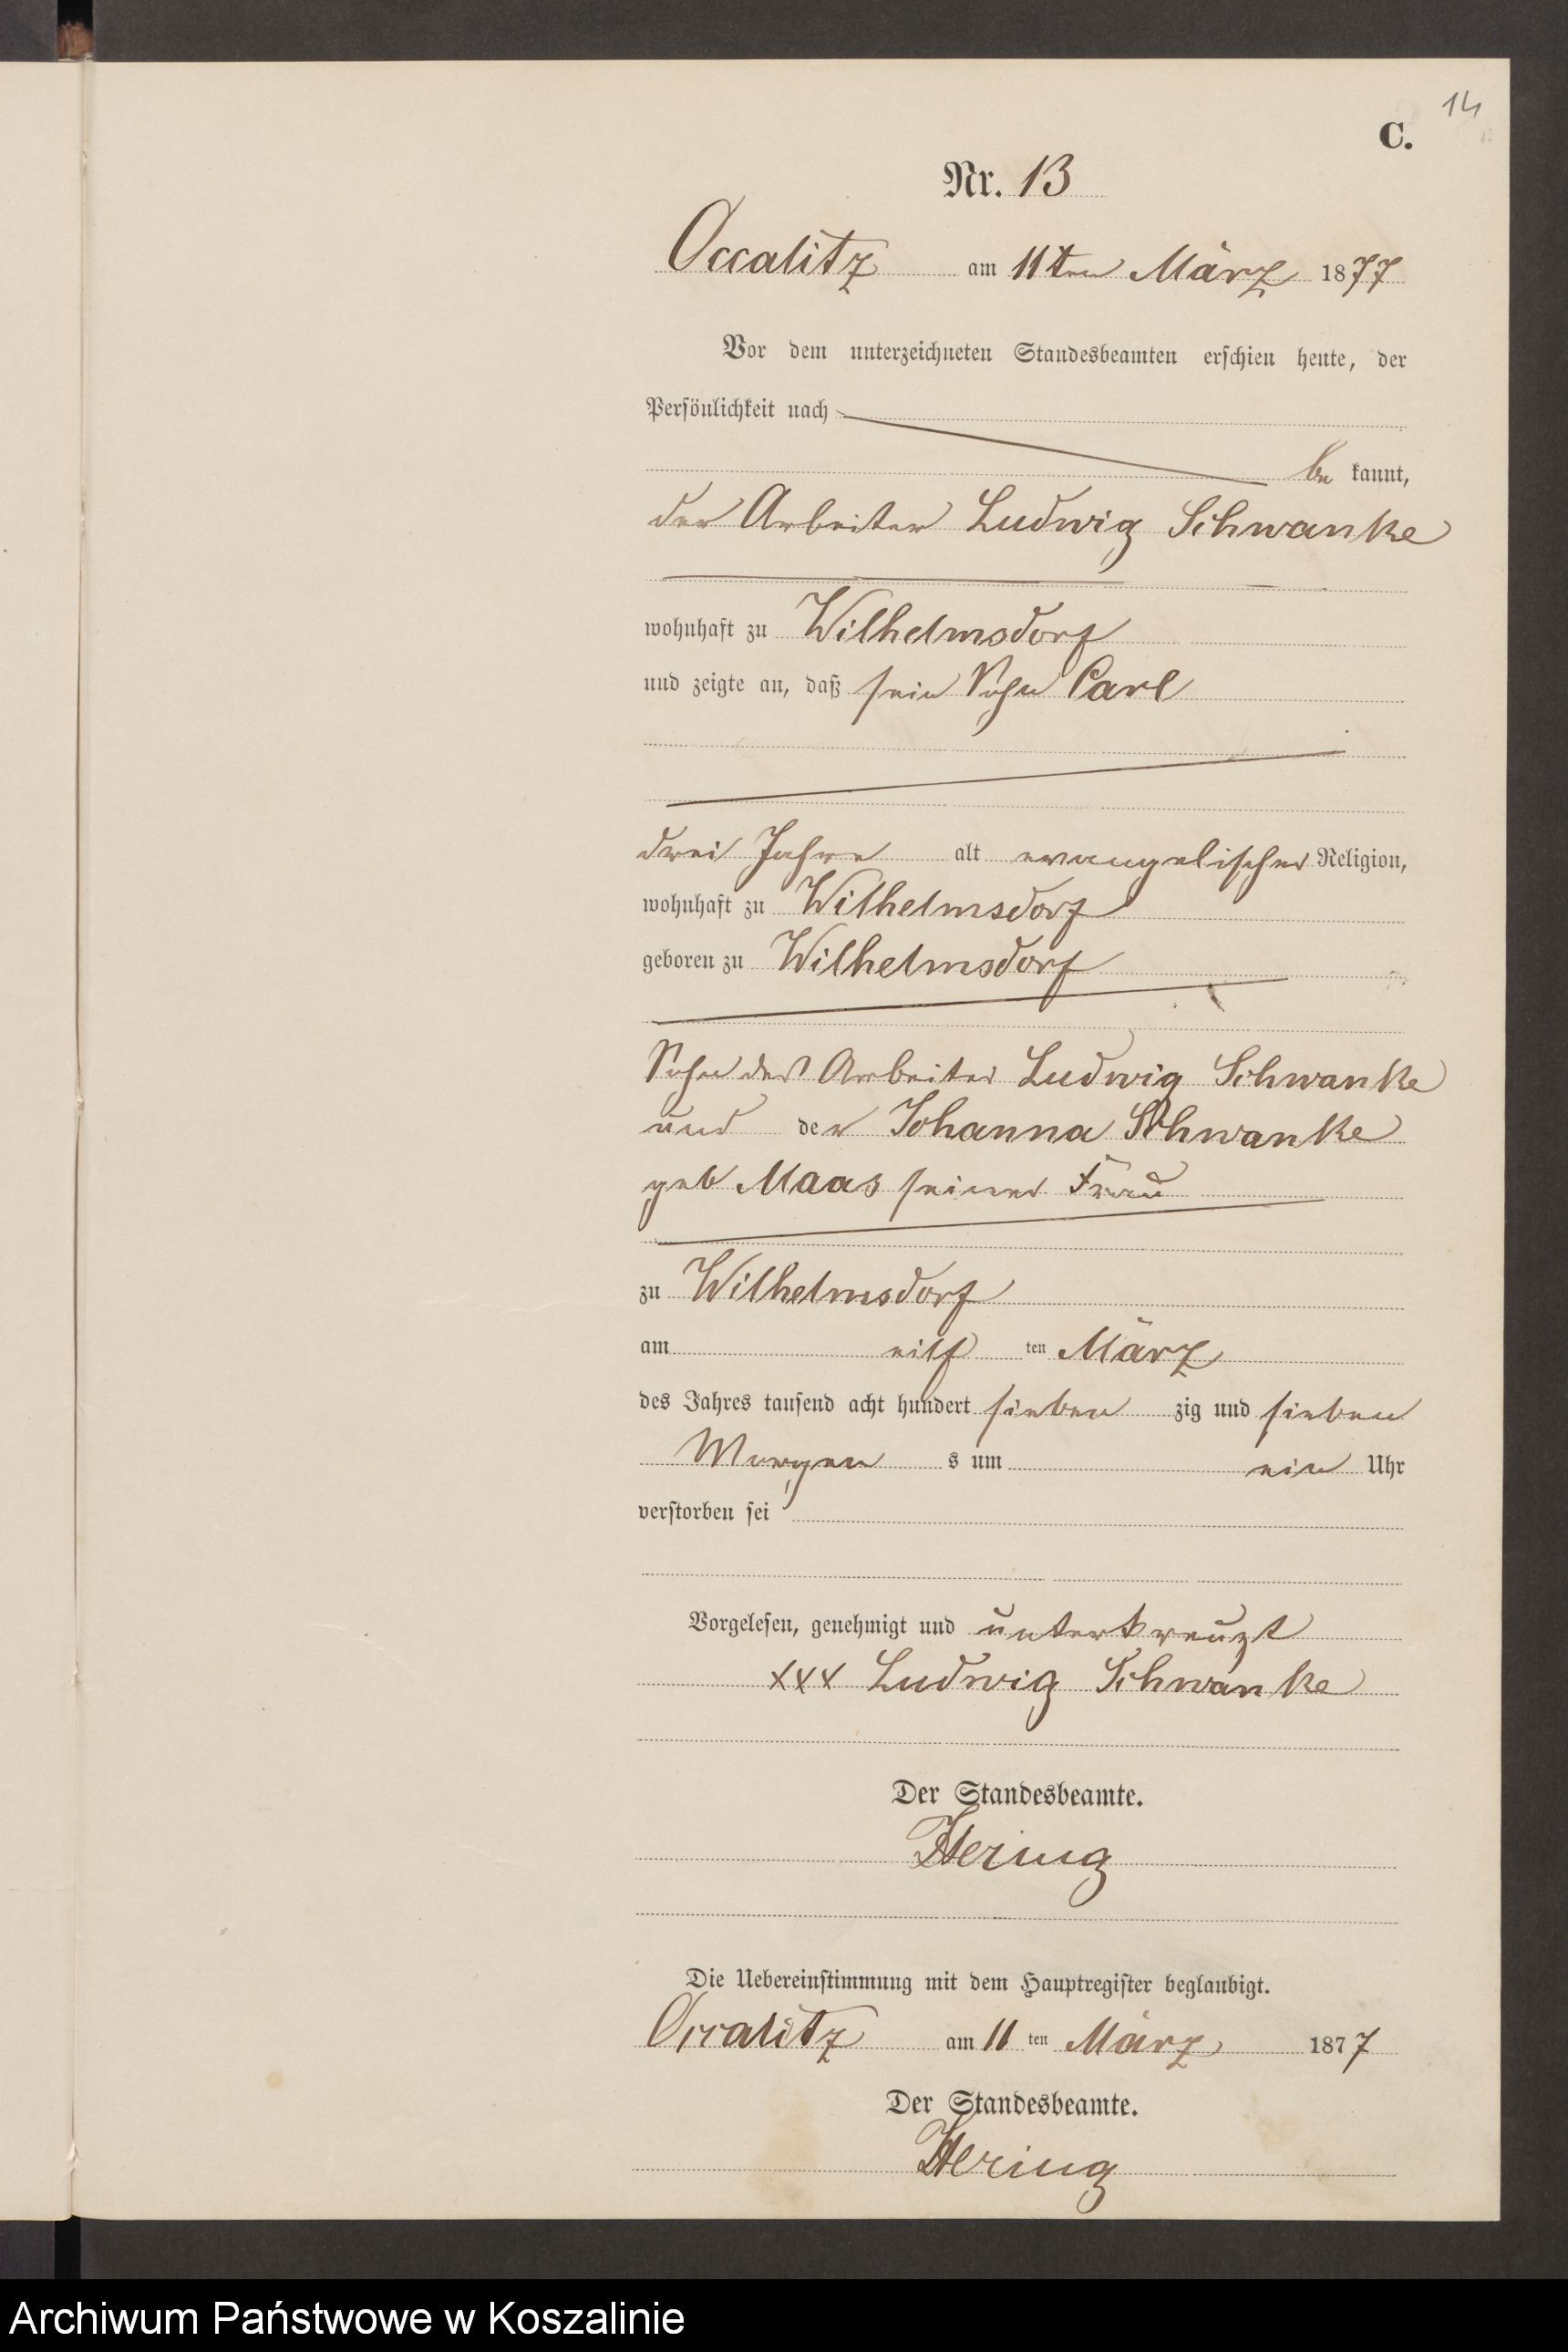 14
C.
Nr. 13
Occalitz am 11ten März 1877
Vor dem unterzeichneten Standesbeamten erschien heute, der
Persönlichkeit nach
be kannt,
der Arbeiter Ludwig Schwanke
wohnhaft zu Wilhelmsdorf
und zeigte an, daß sein Sohn Carl
drei Jahre alt evangelischer Religion,
wohnhaft zu Wilhelmsdorf
geboren zu Wilhelmsdorf
Sohn des Arbeiter Ludwig Schwanke
und der Johanna Schwanke
geb Maas seiner Frau
zu Wilhelmsdorf
am eilf ten März
des Jahres tausend acht hundert sieben zig und sieben
Morgen s um ein Uhr
verstorben sei
Vorgelesen, genehmigt und unterkreuzt
xxx Ludwig Schwanke
Der Standesbeamte.
Hering
Die Uebereinstimmung mit dem Hauptregister beglaubigt.
Occalitz am 11 ten März 1877
Der Standesbeamte.
Hering
Archiwum Państwowe w Koszalinie